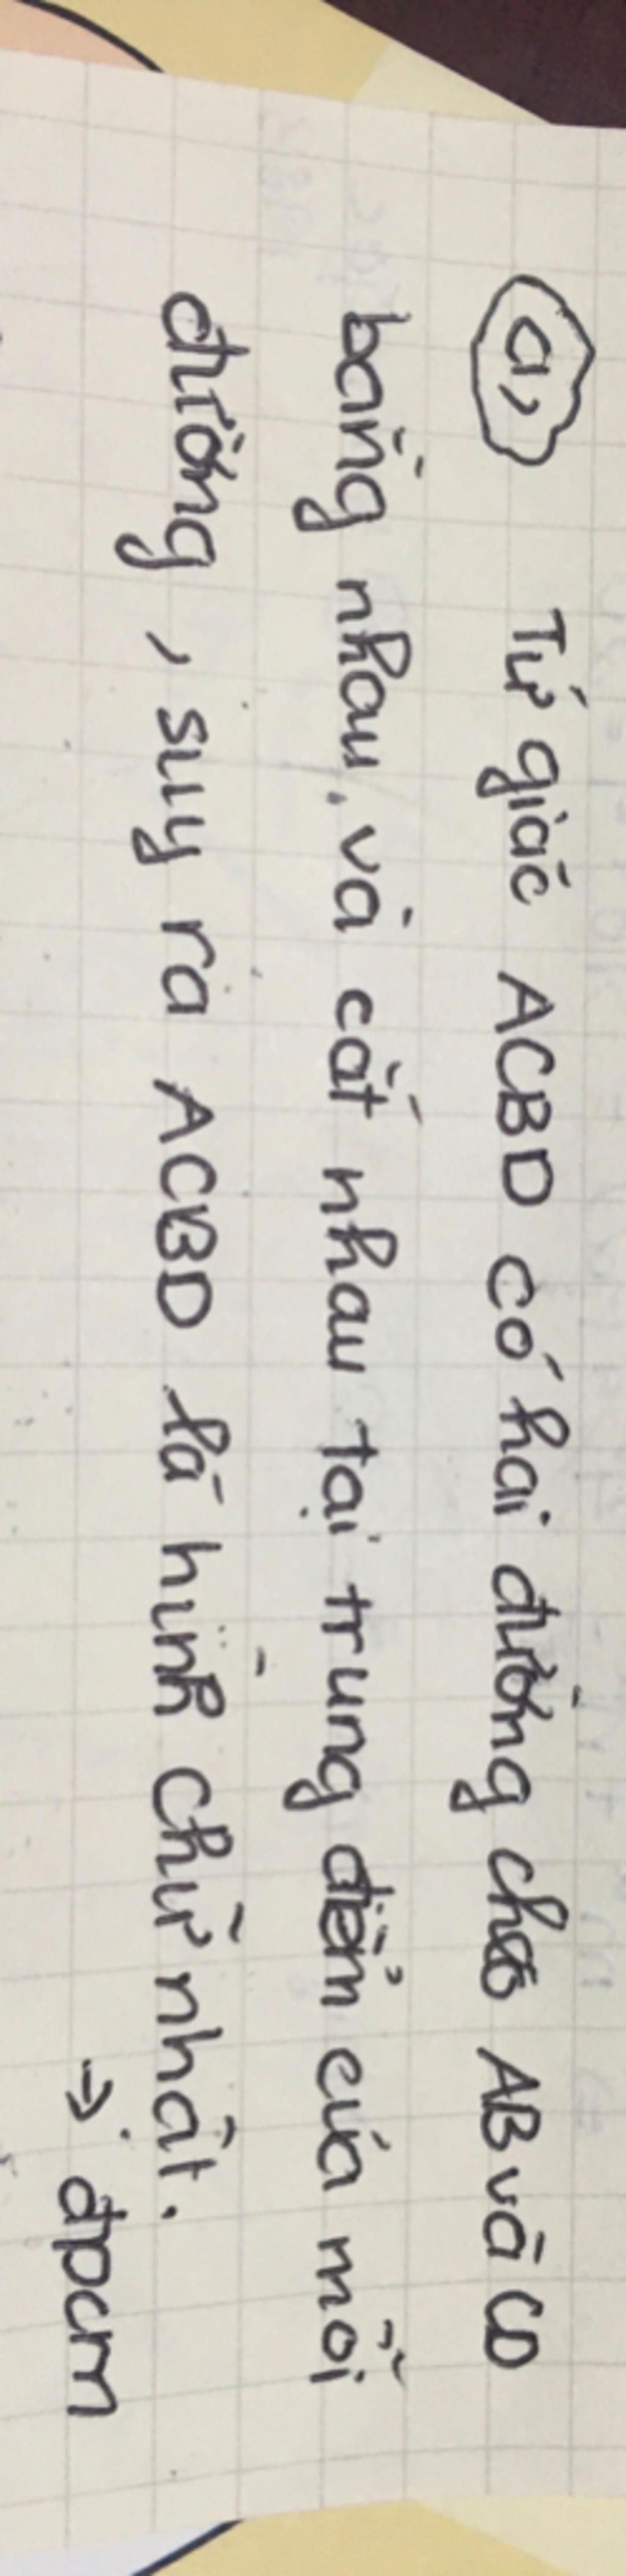 a, Tứ giác ACBD có hai đường chéo AB và CD
bằng nhau, và cắt nhau tại trung điểm của mỗi
đường, suy ra ACBD là hình chữ nhật.
→ đpcm